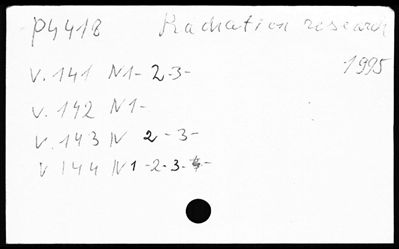 P4418 Radiation research
1995
V. 141 N1- 2-3-
V. 142 N1-
V. 143 N 2 - 3-
V 144 N1-2-3-4-